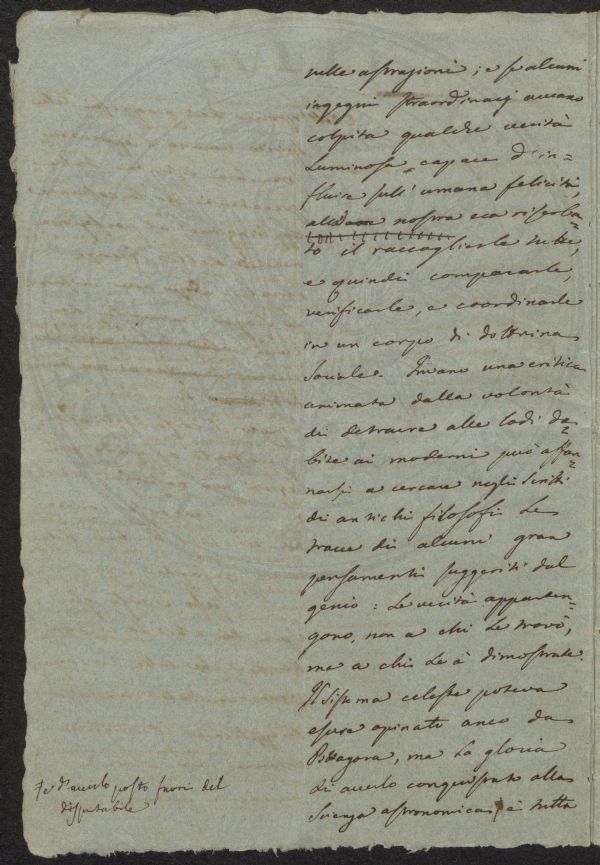 nelle astrazioni; e se alcuni
ingegni straordinarj aveano
colpita qualche verità
luminosa, capace d'in=
fluire sull'umana felicità,
nostra era riserba=
to il raccoglierle tutte,
e quindi compararle,
verificarle, e coordinarle
in un corpo di dottrina
sociale. Invano una critica
animata dalla volontà
di detrarre alle lodi do=
vute ai moderni può affan=
narsi a cercare negli scritti
di antichi filosofi le
tracce di alcuni gran
pensamenti suggeriti dal
genio: le verità apparten=
gono, non a chi le trovò,
ma a chi le à dimostrate.
Il sistema celeste poteva
essere opinato anco da
Pittagora, ma la gloria
di averlo conquistato alla
scienza astronomica è tutta
e d'averlo posto fuori del
disputabile